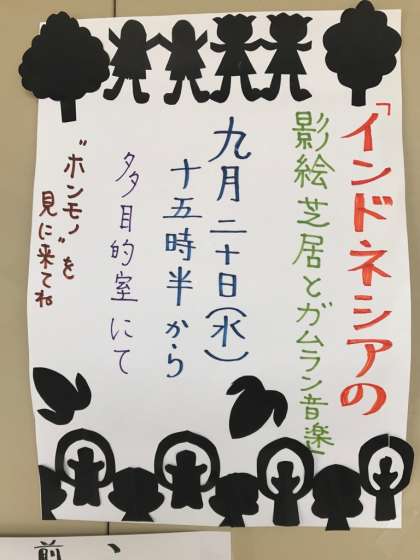 「インドネシアの
影絵芝居とガムラン音楽
九月二十日(水)
十五時半から
多目的室にて
"ホンモノ"を
見に来てね
前